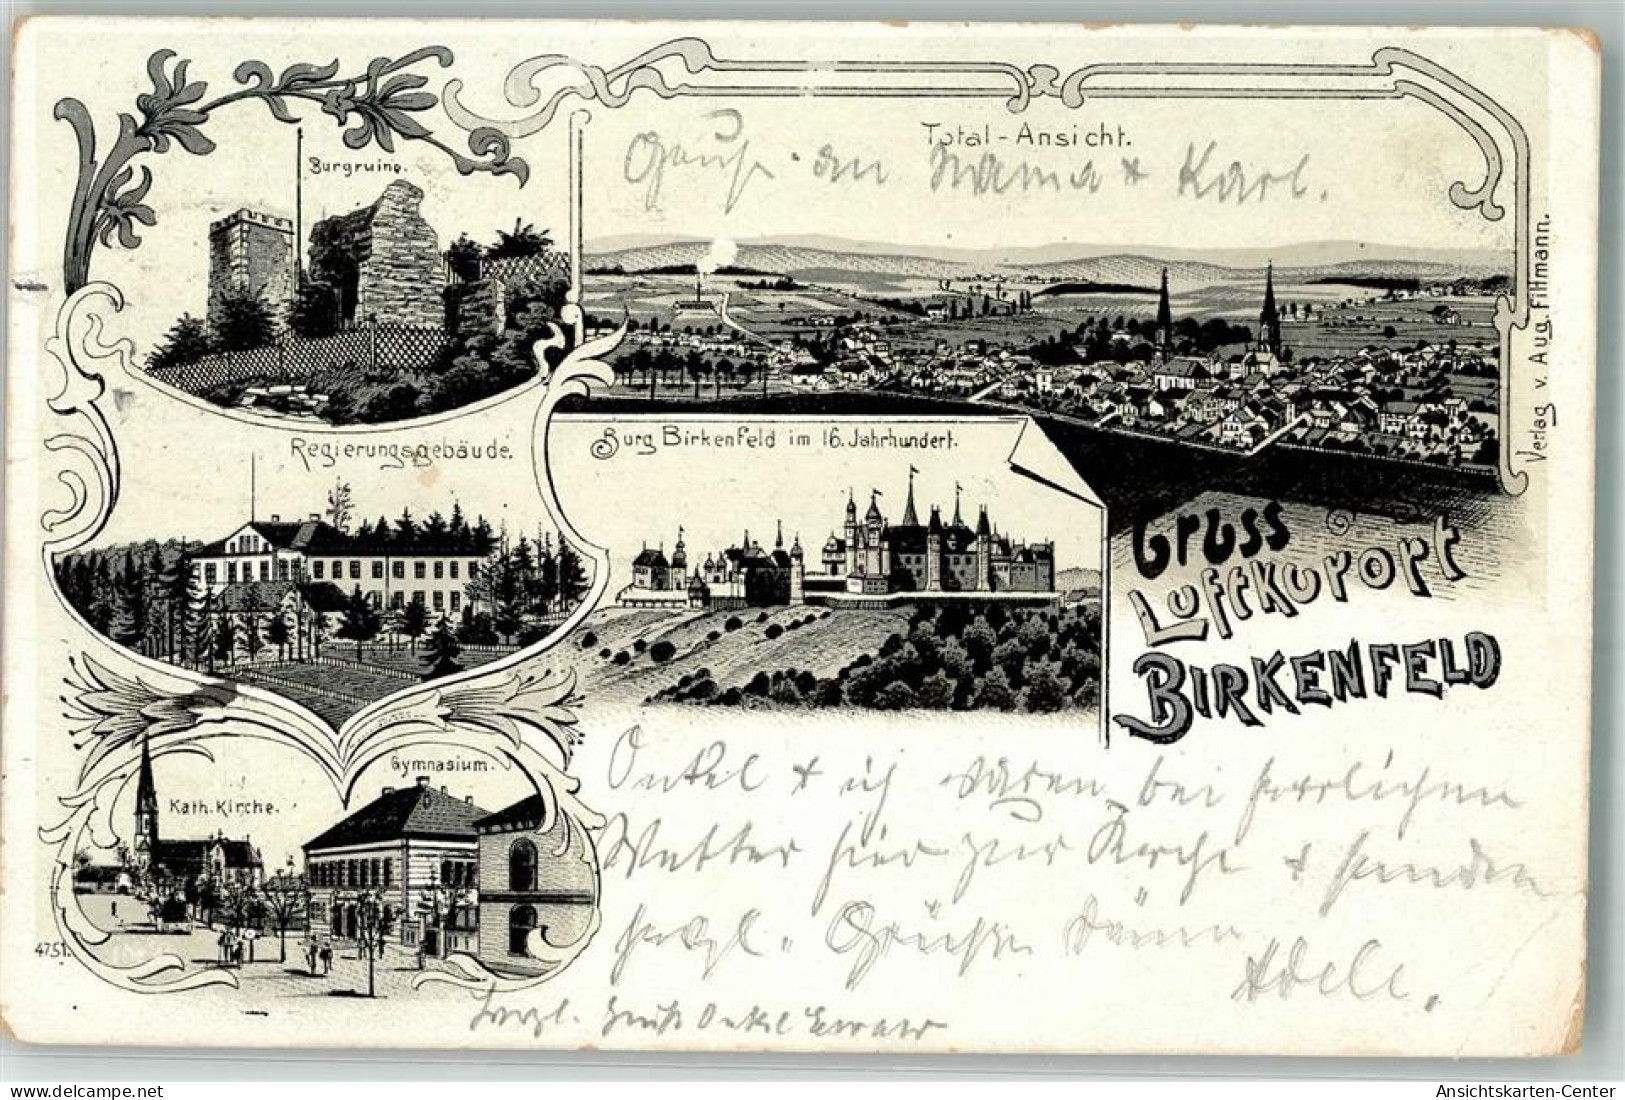 Total-Ansicht.
Gruß an Mama & Karl.
Burgruine.
Verlag v. Aug. Filtmann.
Regierungsgebäude.
Burg Birkenfeld im 16. Jahrhundert.
Gruss
Luftkurort
BIRKENFELD
Gymnasium.
Kath. Kirche.
Onkel & ich waren bei herrlichem
Wetter hier zur Kirche & senden
herzl. Grüße
Adele.
4751.
Herzl. Gruß Onkel
Ansichtskarten-Center
www.delcampe.net